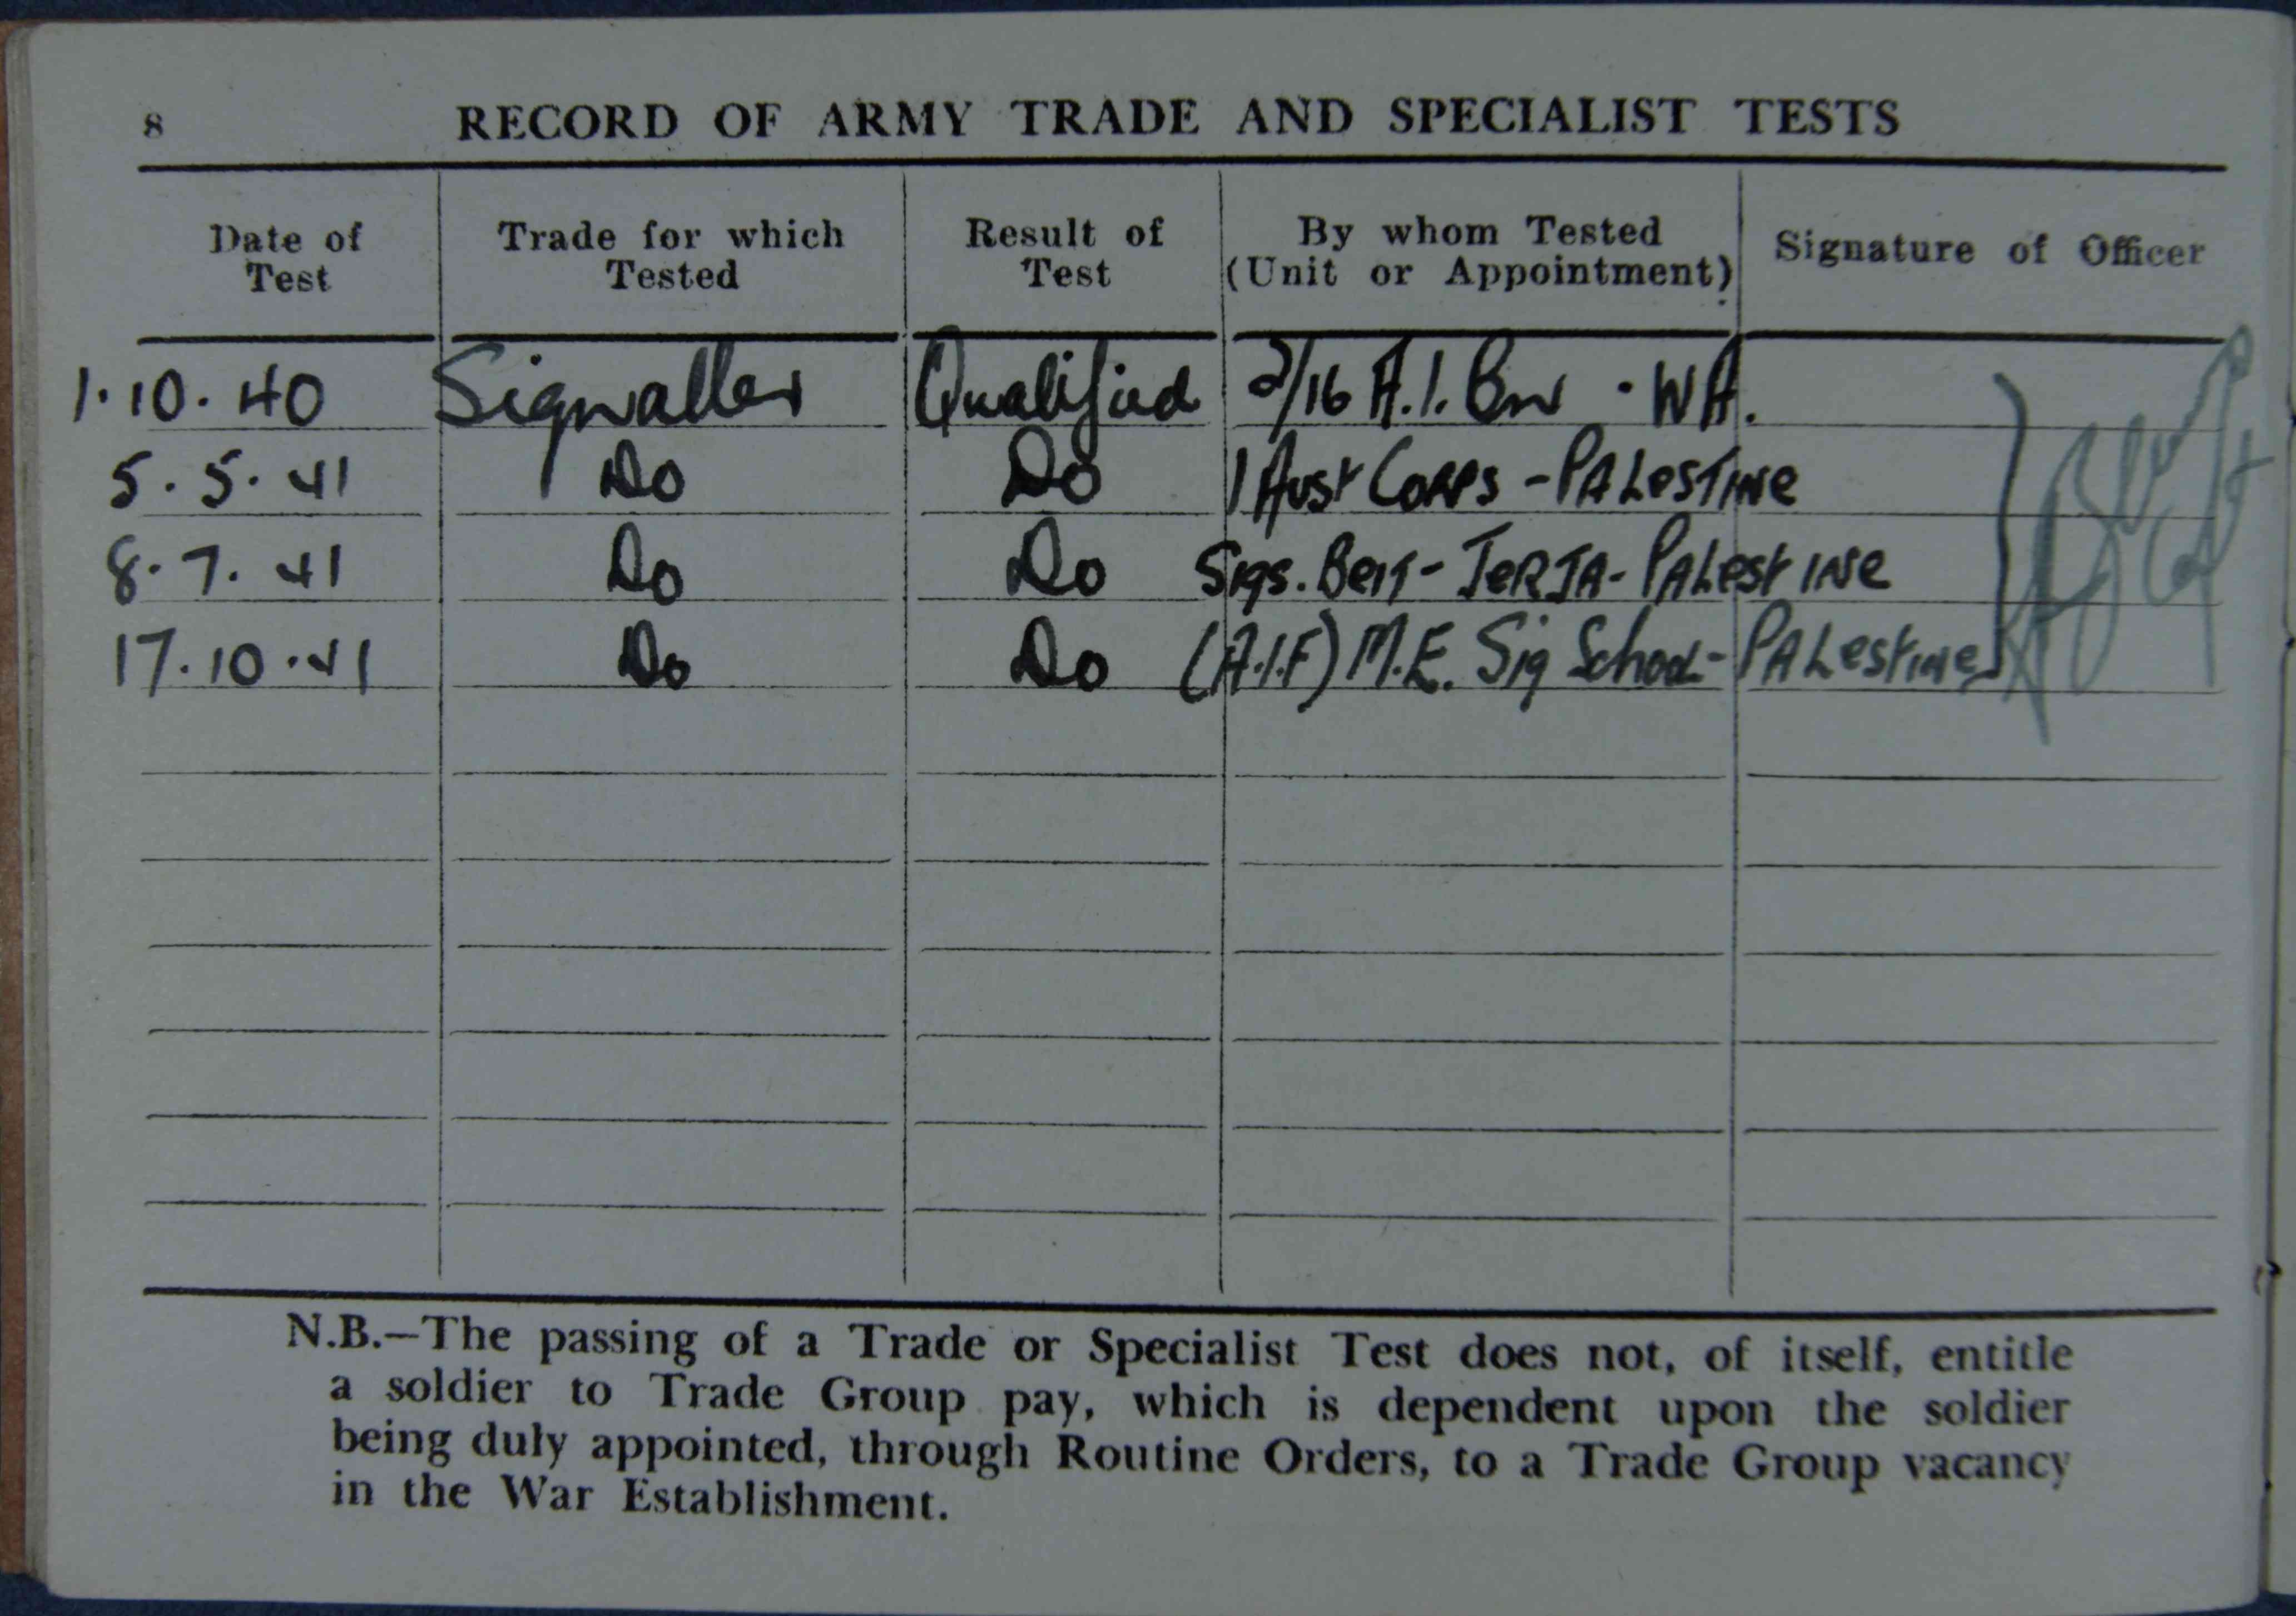 8 RECORD OF ARMY TRADE AND SPECIALIST TESTS
Date of Test Trade for which Tested Result of Test By whom Tested (Unit or Appointment) Signature of Officer
1.10.40 Signaller Qualified 2/16 A.I. Bn . WA.
5.5.41 Do Do 1 Aust Corps - PALESTINE
8.7.41 Do Do Sigs. Beit - JERJA - PALESTINE
17.10.41 Do Do (A.I.F) M.E. Sig School - PALESTINE
N.B.—The passing of a Trade or Specialist Test does not, of itself, entitle
a soldier to Trade Group pay, which is dependent upon the soldier
being duly appointed, through Routine Orders, to a Trade Group vacancy
in the War Establishment.